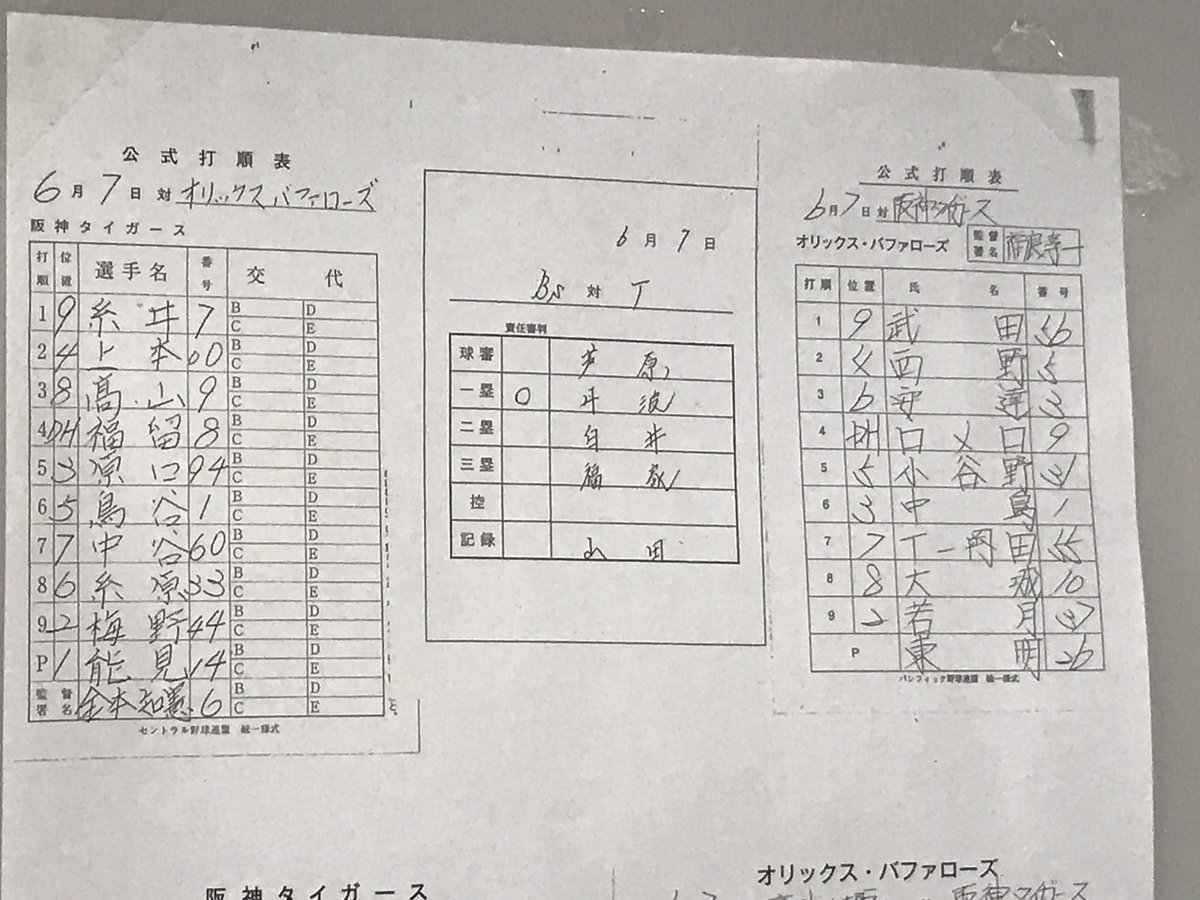 公式打順表
6月7日対オリックスバファローズ
阪神タイガース
打順 位置 選手名 番号 交代
1 9 糸井 7 B D C E
2 4 上本 00 B D C E
3 8 高山 9 B D C E
4 DH 福留 8 B D C E
5 3 原口 94 B D C E
6 5 鳥谷 1 B D C E
7 7 中谷 60 B D C E
8 6 糸原 33 B D C E
9 2 梅野 44 B D C E
P 1 能見 14 B D C E
監督署名 金本知憲 6 B D C E
セントラル野球連盟 統一様式
6月7日
Bs 対 T
責任審判
球審 芦原
一塁 ○ 丹波
二塁 白井
三塁 福家
控
記録 山田
公式打順表
6月7日対阪神タイガース
オリックス・バファローズ 監督署名 福良淳一
打順 位置 氏名 番号
1 9 武田 56
2 4 西野 5
3 6 安達 3
4 DH ロメロ 9
5 5 小谷野 31
6 3 中島 1
7 7 T-岡田 55
8 8 大城 10
9 2 若月 37
P 東明 26
パシフィック野球連盟 統一様式
阪神タイガース
オリックス・バファローズ
阪神タイガース